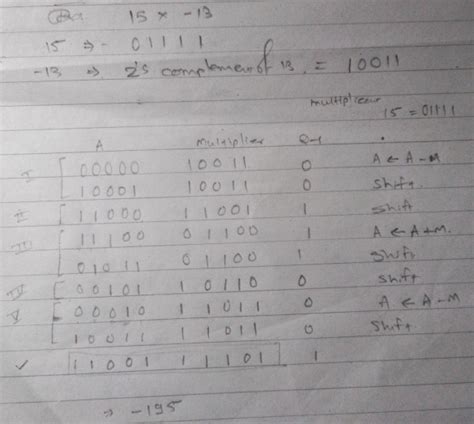 15 × -13
15 ⇒ - 01111
-13 ⇒ 2's complement of 13 = 10011
15 = 01111
A Multiplier Q-1
I 00000 10011 0 A ← A-M
10001 10011 0 Shift
II 11000 11001 1 Shift
III 11100 01100 1 A ← A+M
01011 01100 1 Shift
IV 00101 10110 0 Shift
V 00010 11011 0 A ← A-M
10011 11011 0 Shift
✓ 11001 11101 1
⇒ -195